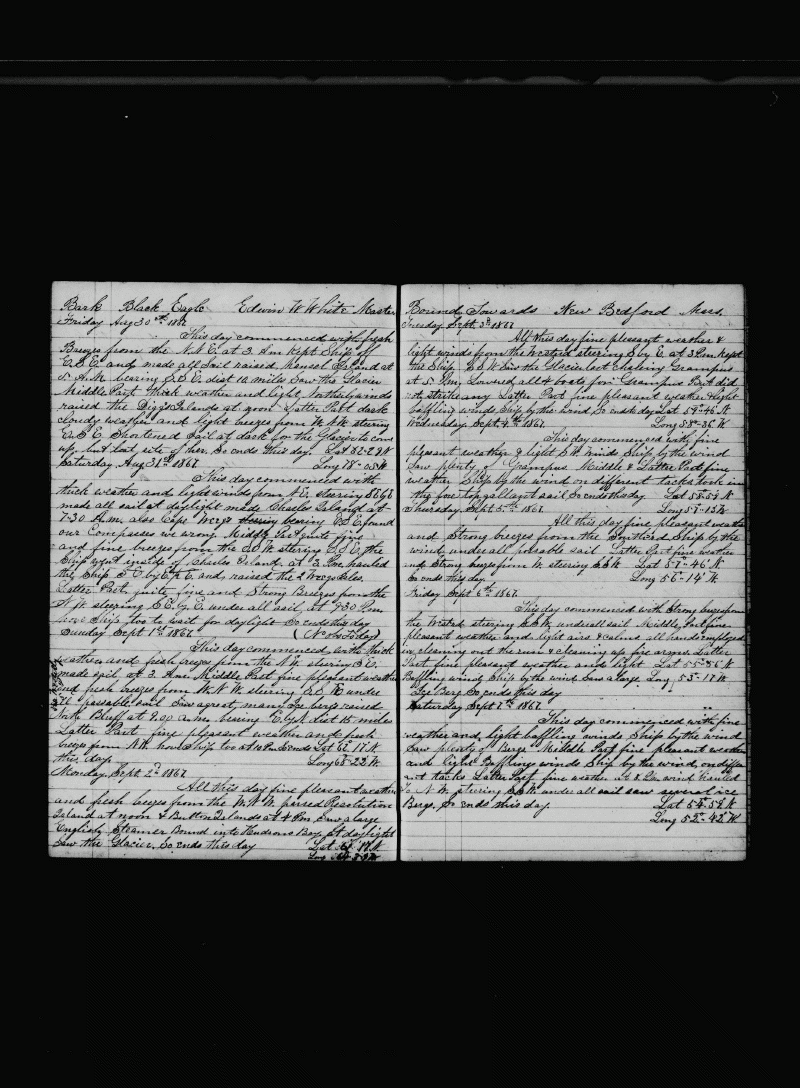 Bark Black Eagle Edwin W White Master
Friday Aug 30th 1867
This day commenced with fresh
Breezes from the N.N.E. at 3 Am Kept Ship off
E.S.E. and made all Sail raised Mansel Island at
5 A.M. bearing E.S.E. dist 10 miles Saw the Glacier
Middle Part thick weather and light Northerly winds
raised the Diggs Islands at noon Latter Part dark
cloudy weather and light breezes from W.N.W. steering
E.S.E. Shortened Sail at dark for the Glacier to come
up, but lost site of her. So ends this day. Lat 62-29 N
Saturday Aug 31st 1867 Long 78-05 W
This day commenced with
thick weather and light winds from N.E. steering
made all sail at daylight made Charles Island at
7-30 A.m. also Cape bering E.S.E. found
our Compasses we wrong. Middle Part quite fine
and fine breezes from the steering E.S.E. the
Ship went inside of Charles Island. at 3 P.m. hauled
the Ship S.E. by E. & E. and raised the 2 Isles.
Latter Part quite fine and Strong Breezes from the
W.N.W. steering S.E. by E. under all sail, at 9-30 P.m.
hove Ship too to wait for daylight So ends this day
Sunday Sept 1st 1867 (No obs To day)
This day commenced with thick
weather and fresh breezes from the N.W. steering
made sail at 3 Am Middle Part fine pleasant weather
and fresh breezes from W.N.W. steering E.S.E. under
all passable sail Saw a great many Ice bergs raised
North Bluff at 9.00 a.m. bering dist 15 miles
Latter Part fine pleasant weather and fresh
breezes from N.W. hove Ship too at 10 P.m. So ends Lat 62-17 N
this day. Long 68-22 W
Monday Sept 2d 1867
All this day fine pleasant weather
and fresh breezes from the W.N.W. passed Resolution
Island at noon & Button Islands at 4 P.m. Saw a large
English Steamer Bound into Hudsons Bay, at daylight
saw the Glacier. So ends this day Lat N
Long W
Bound Towards New Bedford Mass.
Tuesday Sept. 3d 1867
All this day fine pleasant weather &
light winds from the Westard steering S by E. at 3 P.m. Kept
the Ship S.S.E. Saw the Glacier boats chasing Grampus
at 5 P.m. Lowered all 4 boats for Grampus But did
not strike any Latter Part fine pleasant weather & light
baffling winds Ship by the wind So ends day Lat 59-46 N
Wednesday. Sept 4th 1867. Long 58-36 W
This day commenced with fine
pleasant weather & light S.W. winds Ship by the wind
Saw plenty of Grampus Middle & Latter Part fine
weather Ship by the wind on different tacks took in
the fore top gallant sail So ends this day. Lat 58-59 N
Thursday Sept 5th 1867 Long 57-13 W
All this day fine pleasant weather
and Strong breezes from the Southard Ship by the
wind under all passable sail Latter Part fine weather
and Strong breezes from W. steering S.S.E. Lat 57-46 N
So ends this day. Long 56-14 W
Friday Sept 6th 1867.
This day commenced with Strong breezes from
the Westard steering S.S.E. under all sail Middle Part fine
pleasant weather and light airs & calms all hands employed
in cleaning out the run & cleaning up fire arms Latter
Part fine pleasant weather and light Lat 55-56 N
Baffling winds Ship by the wind Saw a large Long 53-17 W
Ice Berg So ends this day
Saturday Sept 7th 1867.
This day commenced with fine
weather and light baffling winds Ship by the wind
Saw plenty of Bergs Middle Part fine pleasant weather
and light Baffling winds Ship by the wind, on differ
ent tacks Latter Part fine weather at 6 P.m. wind Hauled
To N.W. steering S.S.E. under all sail saw several ice
Bergs, So ends this day. Lat 54-54 N
Long 52-42 W